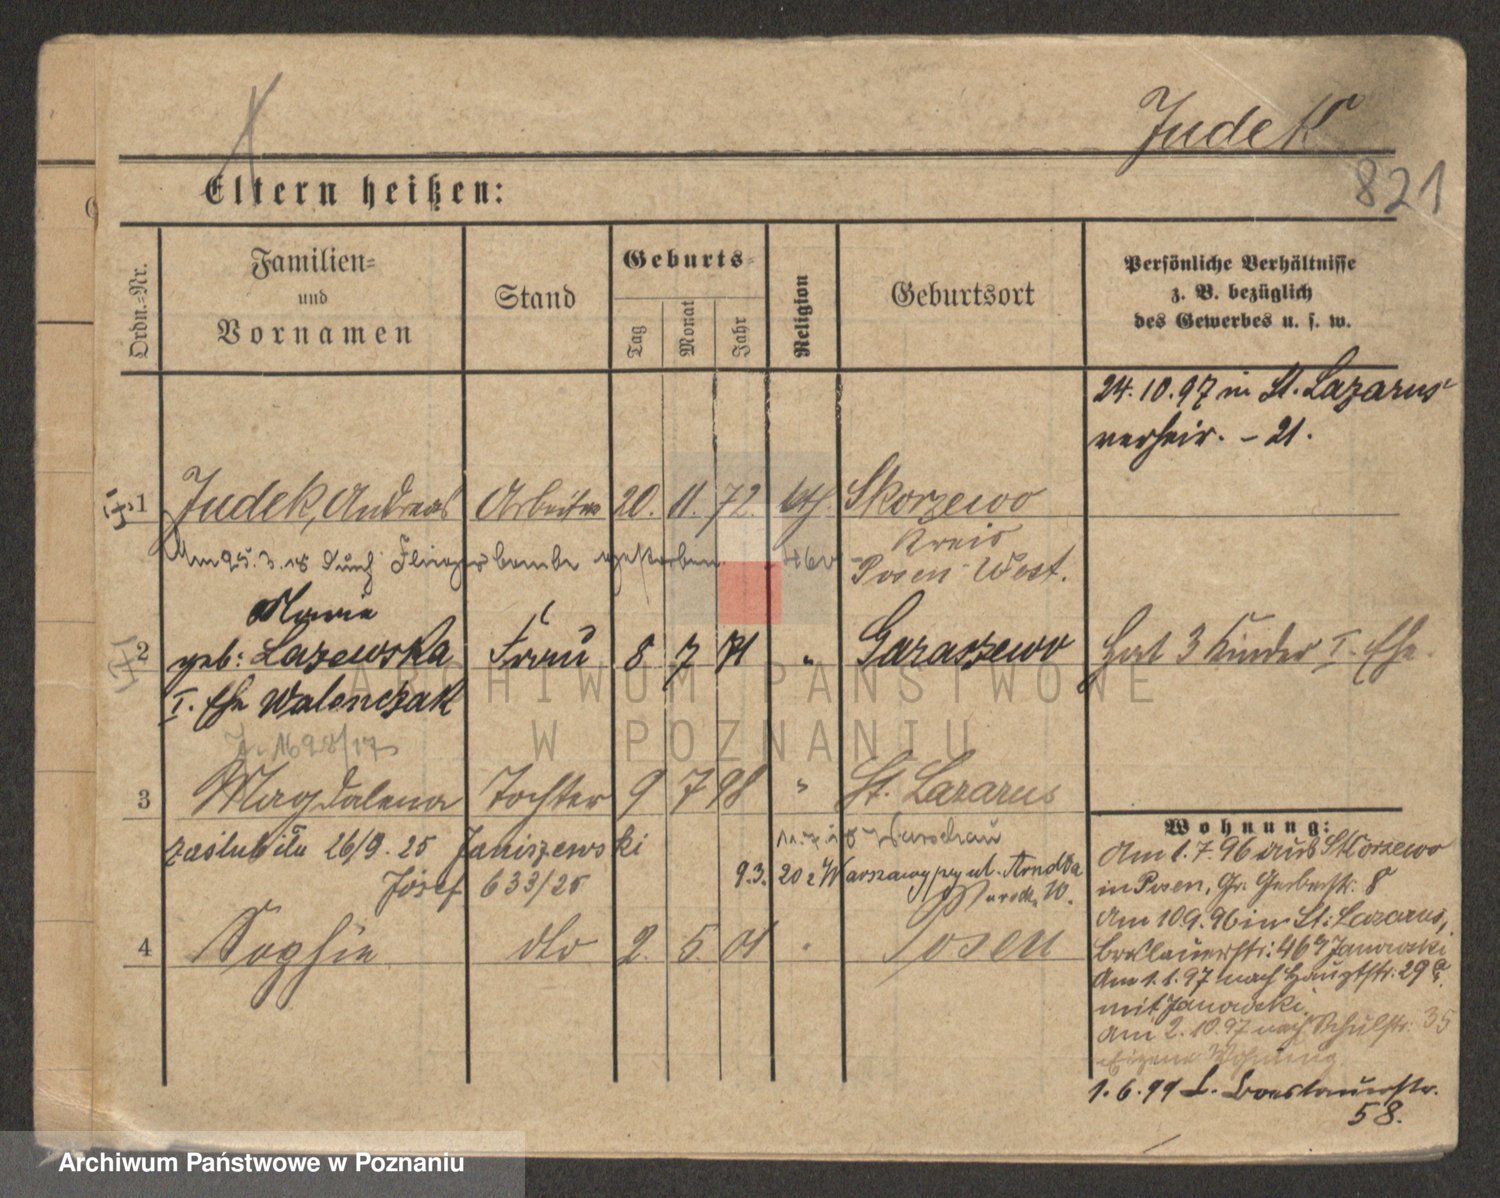 Judek
821
Eltern heißen:
Ordn.=Nr.
Familien=
und
Vornamen
Stand
Geburts=
Tag
Monat
Jahr
Religion
Geburtsort
Persönliche Verhältnisse
z. B. bezüglich
des Gewerbes u. s. w.
24. 10. 97 in St. Lazarus
verheir. – 21.
1 Judek, Andreas Arbeiter 20. 11. 72. kth. Skorzewo
Kreis
Am 25. 3. 18 durch Fliegerbombe gestorben
Posen West.
Marie
2 geb: Lazewska Frau 8 7 71 " Garaszewo Hat 3 Kinder I. Ehe.
I. Ehe Walenczak
1698/17
3 Magdalena Tochter 9 7 98 " St. Lazarus
zaślubiła 26/9. 25 Janiszewski
Józef 633/25
Warschau
9.3. 20 z Warszawy
4 Sophie dto 2. 5. 01 " Posen
Wohnung:
Am 1. 7. 96 aus Skorzewo
in Posen, Gr. Gerberstr. 8
Am 10.9. 96 in St: Lazarus,
Breslauerstr: 46 Janowski
Am 1. 1. 97 nach Hauptstr. 29
mit Janowski.
Am 2. 10. 97 nach Schulstr. 35
Eigene Wohnung
1. 6. 99 L. Breslauerstr.
58.
ARCHIWUM PAŃSTWOWE
W POZNANIU
Archiwum Państwowe w Poznaniu